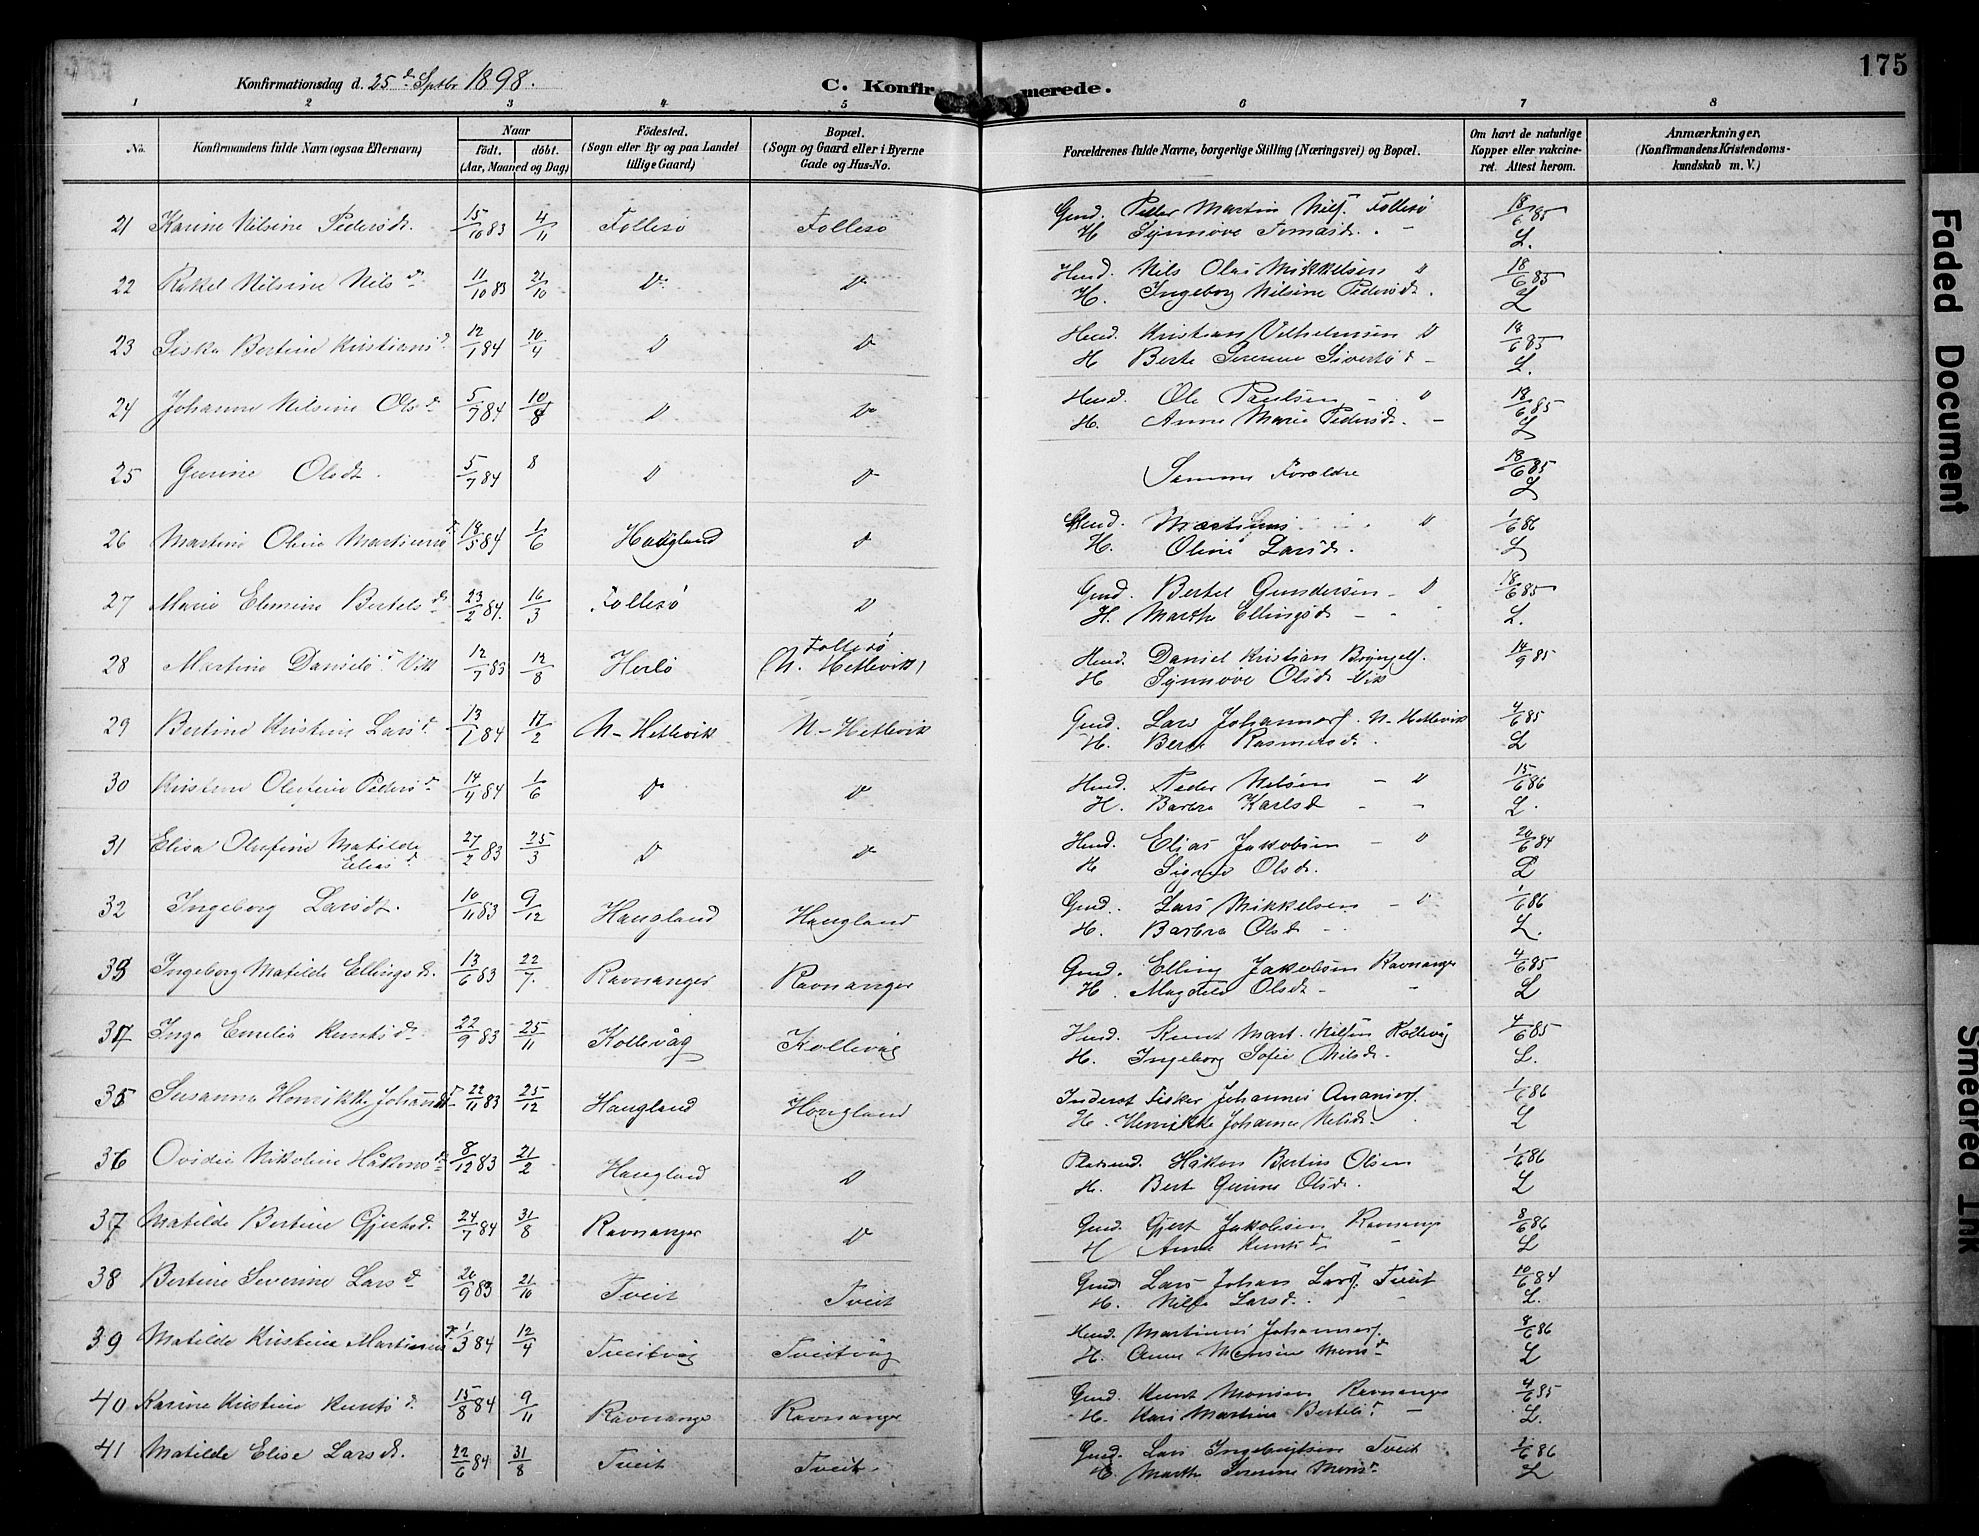 175
Konfirmationsdag d. 25de Septbr 1898.
C. Konfir merede.
1 2 3 4 5 6 7 8
No. Konfirmandens fulde Navn (ogsaa Efternavn) Naar født. døbt. (Aar, Maaned og Dag) Fødested. (Sogn eller By og paa Landet tillige Gaard) Bopæl. (Sogn og Gaard eller i Byerne Gade og Hus-No. Forældrenes fulde Navne, borgerlige Stilling (Næringsvei) og Bopæl. Om havt de naturlige Kopper eller vakcineret. Attest herom. Anmærkninger. (Konfirmandens Kristendomskundskab m. V.)
21 Karine Nilsine Pedersdt. 15/10 83 4/11 Follesø Follesø Gmd. Peder Martin Nils. Follesø 18/6 85
H Synnøve Tomasd. - L.
22 Rakel Nilsine Nilsd. 11/10 83 21/10 D D Hmd. Nils Olai Mikkelsen " 18/6 85
H. Ingeborg Nilsine Pedersdt. L
23 Siska Bertine Kristiansd. 12/1 84 10/4 D D Hmd. Kristian Vilhelmsen D 18/6 85
H Berte Severine Sivertsd - L.
24 Johanne Nilsine Olsd 5/7 84 10/8 D D Hmd. Ole Paulsen - D 18/6 85
H. Anne Marie Pedersdt. - L
25 Gurine Olsdt. 5/7 84 8 D D Samme Forældre 18/6 85
L
26 Martine Oline Martinusd. 18/5 84 1/6 Haugland D Hmd. Martinus " 1/6 86
H. Oline Larsd. L
27 Marie Elenine Bertelsd. 23/2 84. 16/3 Follesø D Gmd. Bertel Gundersen - D 18/6 85
H. Marthe Ellingsd - L.
28 Martine Danielsd Vik 12/7 83 12/8 Herlø Follesø (N. Hetlevik) Hmd. Daniel Kristian Brynjels. 14/9 85
H Synnøve Olsd Vik
29 Bertine Kristine Larsd. 13/1 84 17/2 N-Hetlevik N-Hetlevik Gmd. Lars Johannes. N-Hetlevik 4/6 85
H. Berte Rasmusd. L
30 Kristine Olufine Pedersd. 14/4 84 1/6 D D Hmd. Peder Nilsen - " 15/6 86
H. Barbra Karlsd - - L.
31 Elisa Olufine Matilde Eliasd. 27/2 83 25/3 D D Hmd. Elias Jakobsen - " 20/6 84
H Signe Olsdt. L
32 Ingeborg Larsdt. 10/11 83 9/12 Haugland Haugland Gmd. Lars Mikkelsen - D 1/6 86
H. Barbra Olsd - L.
33 Ingeborg Matilde Ellingsd. 13/6 83 22/7. Ravnanger Ravnanger Gmd. Elling Jakobsen Ravnanger 4/6 85
H. Magdele Olsdt - - L
34 Inga Emelia Knutsd. 22/9 83 25/11 Kollevåg Kollevåg Hmd. Knut Mart. Nilsen Kollevåg 4/6 85
H. Ingeborg Sofie Nilsd. L.
35 Susanna Henrikke Johannsd 22/11 83 25/12 Haugland Haugland Inderst Fisker Johannes Ananias. 1/6 86
H. Henrikke Johanne Nilsd. L
36 Ovidie Nikoline Håkonsd 8/12 83 21/2 Haugland D Pladsmd. Håkon Bertin Olsen 1/6 86
H. Berte Gurine Olsd. L
37 Matilde Bertine Gjertsd. 24/7 84 31/8 Ravnanger D Gmd. Gjert Jakobsen Ravnange 8/6 86
H Anna Knutsd - L
38 Bertine Severine Larsd 20/9 83 21/10 Tveit Tveit Gmd. Lars Johan Lars. Tveit 10/6 84
H. Nille Larsd. - L.
39 Matilde Kristine Martinusd. 1/3 84 12/4 Tveitvåg Tveitvåg Hmd. Martinus Johannes. 8/6 86
H. Anne Monsine Monsd L
40 Karine Kristine Knutsd 15/8 84 9/11 Ravnange Ravnange Gmd. Knut Monsen Ravnange 4/6 85
H. Kari Martine Bertelsd. - L.
41 Matilde Elise Larsdt. 22/6 84 31/8 Tveit Tveit Gmd. Lars Ingebrigtsen Tveit 1/6 86
H Marthe Severine Monsd L
Faded Document
Smeared Ink